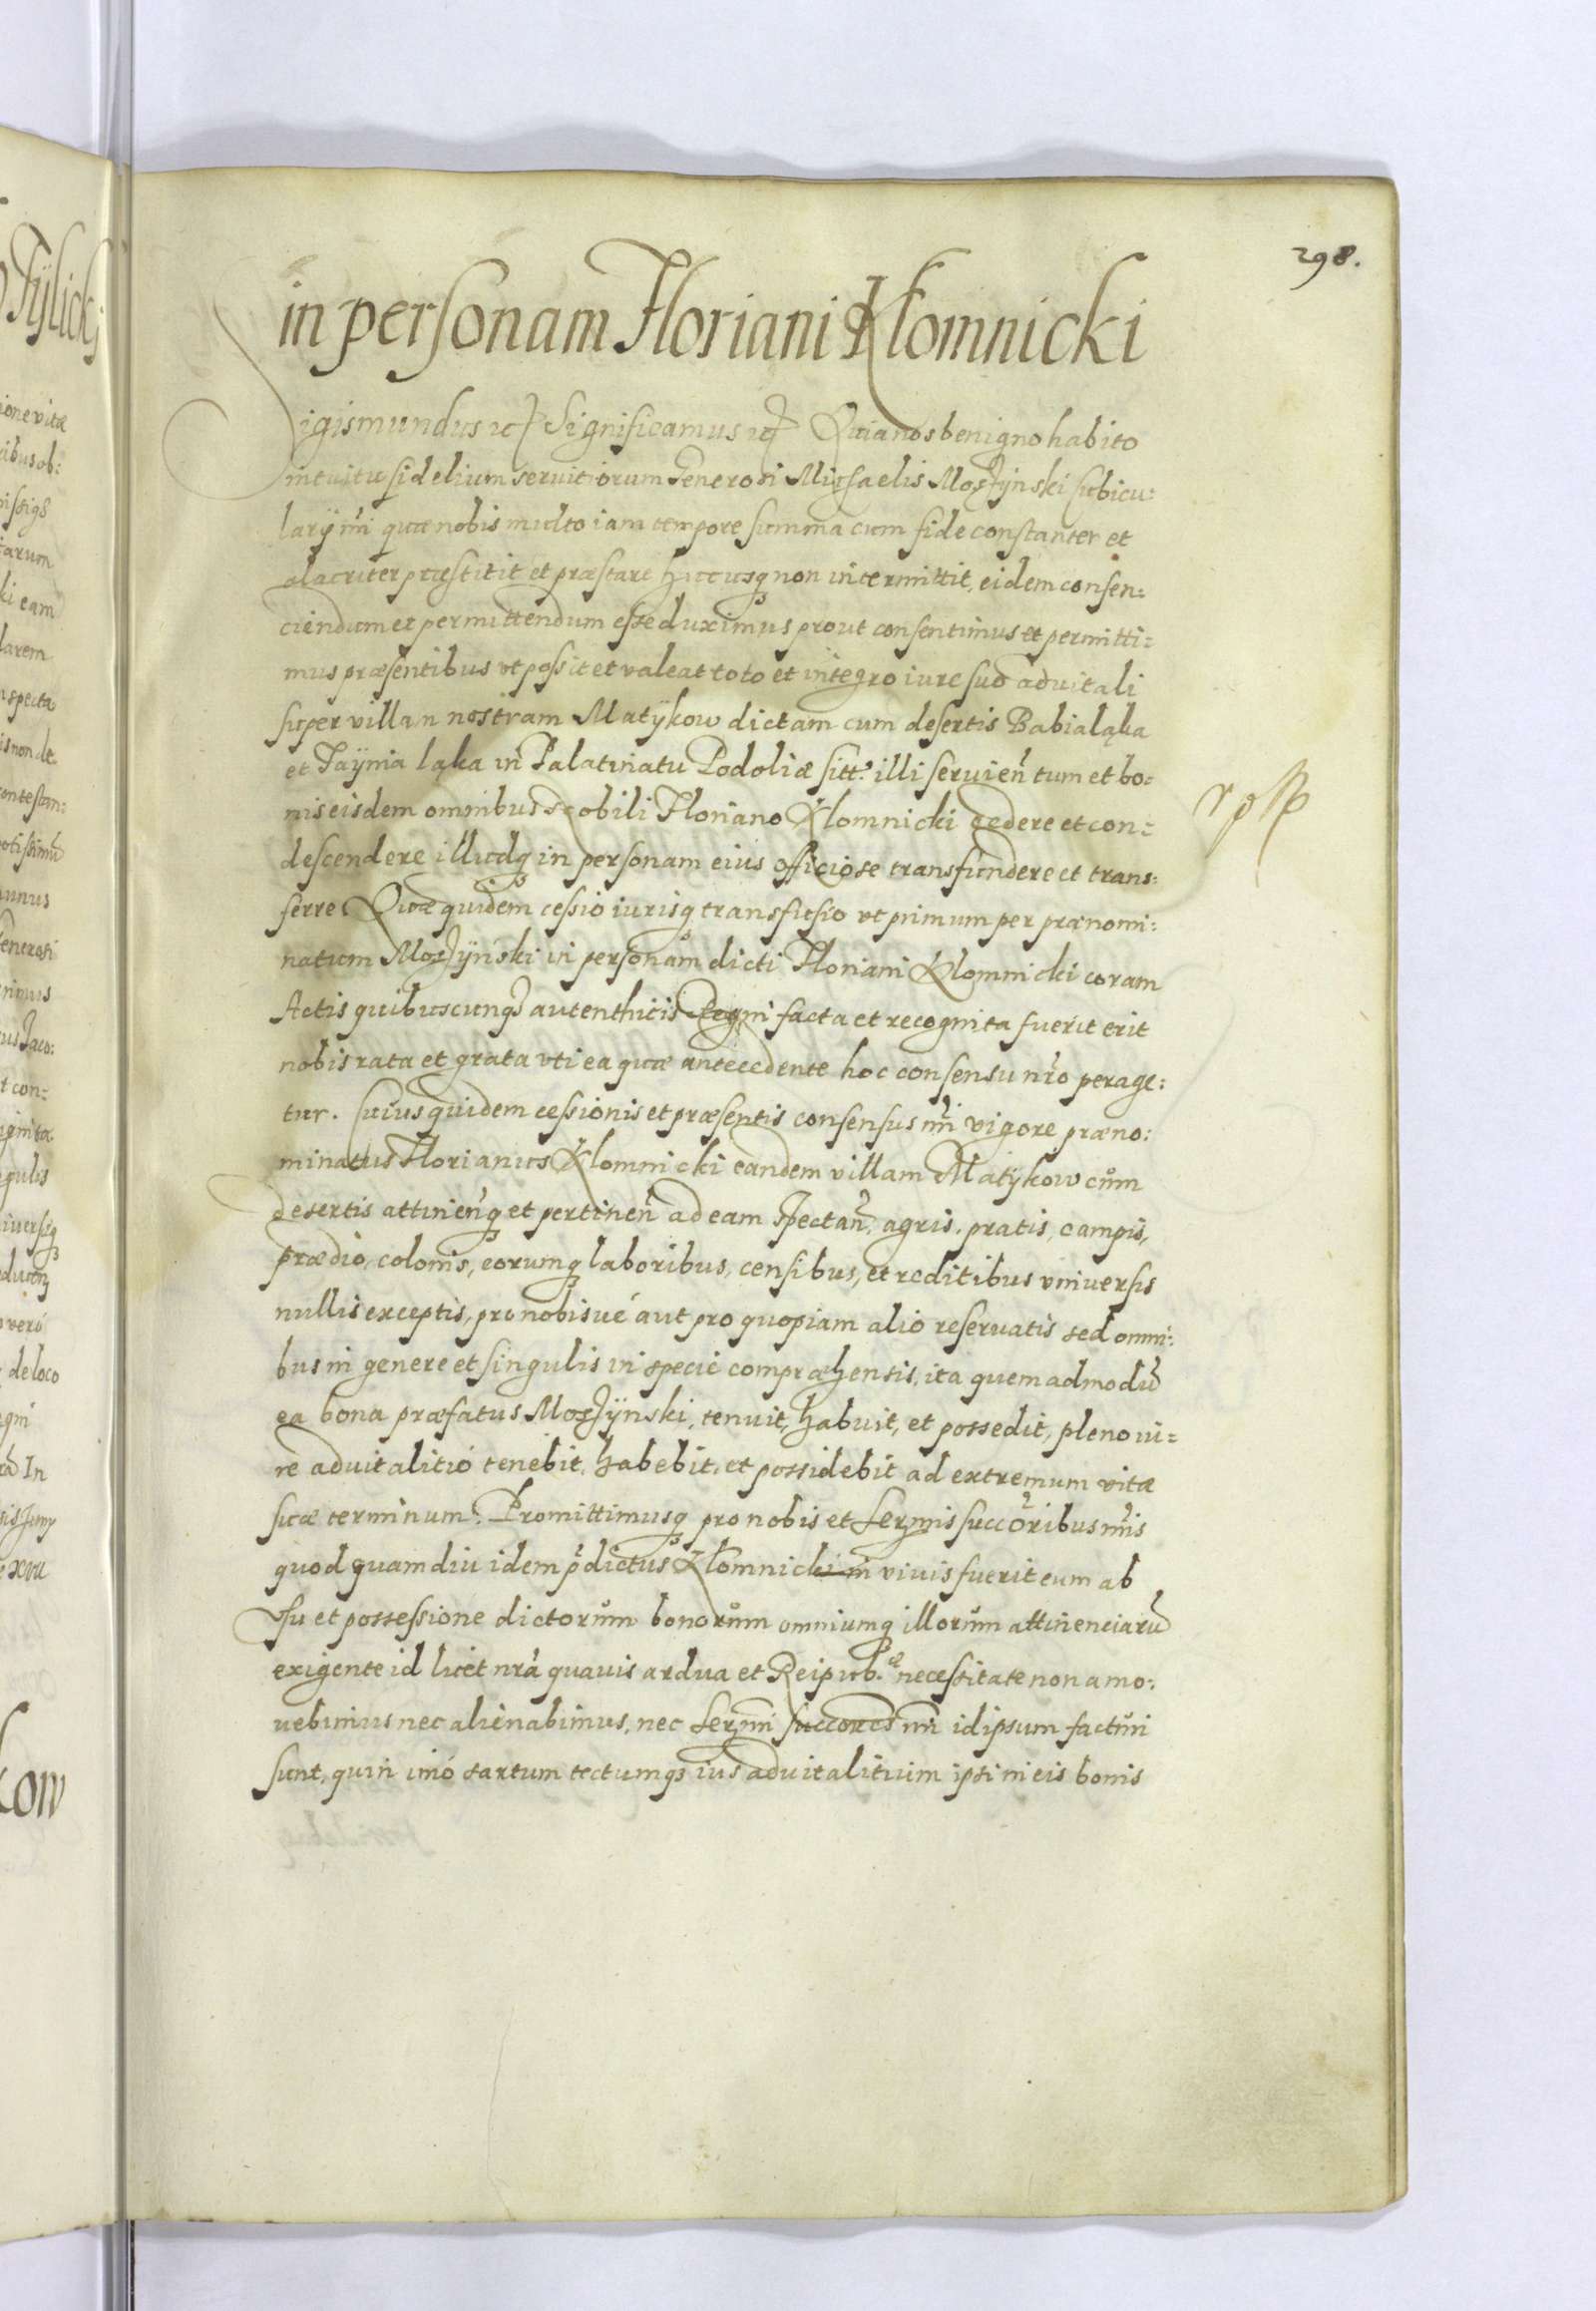 298.
in personam Floriani Kłomnicki
Sigismundus etc Significamus etc Quia nos benigno habito
intuitu fidelium servitiorum Generosi Michaelis Moszÿnski cubicu:
larÿ nri quæ nobis multo iam tempore summa cum fide constanter et
alacriter præstitit et præstare hucusq non intermittit, eidem consen:
ciendum et permittendum esse duximus prout consentimus et permitti=
mus præsentibus vt possit et valeat toto et integro iure suo aduitali
super villam nostram Matÿkow dictam cum desertis Babialąka
et Taÿnia ląka in Palatinatu Podoliæ sitt. illi seruien tum et bo=
nis eisdem omnibus Nobili Floriano Kłomnicki cedere et con=
descendere illudq in personam eius officiose transfundere et trans:
ferre Quæ quidem cessio iurisq transfusio vt primum per prænomi:
natum Moszÿnski in personam dicti Floriani Kłomnicki coram
Actis quibuscunq autenthicis Regni facta et recognita fuerit erit
nobis rata et grata vti ea quæ antecedente hoc consensu nro perage:
tur. Cuius quidem cessionis et præsentis consensus nri vigore præno:
minatus Florianus Kłomnicki eandem villam Matÿkow cum
desertis attinenq et pertinen ad eam spectan, agris, pratis, campis,
prædio, colonis, eorumq laboribus, censibus, et reditibus vniuersis
nullis exceptis, pro nobisué aut pro quopiam alio reseruatis sed omni:
bus in genere et singulis in specie compræhensis, ita quemadmodu
ea bona præfatus Moszÿnski, tenuit, habuit, et possedit, pleno iu=
re aduitalitio tenebit, habebit, et possidebit ad extremum vitæ
suæ terminum. Promittimusq pro nobis et Sermis succoribus nris
quod quamdiu idem pdictus Kłomnicki in viuis fuerit eum ab
vsu et possessione dictorum bonorum omniumq illorum attinenciaru
exigente id licet nra quauis ardua et Reipub.æ necessitate non amo:
uebimus nec alienabimus, nec Sermi succores nri id ipsum facturi
sunt, quin imó sartum tectumq ius aduitalitium ipsi in eis bonis